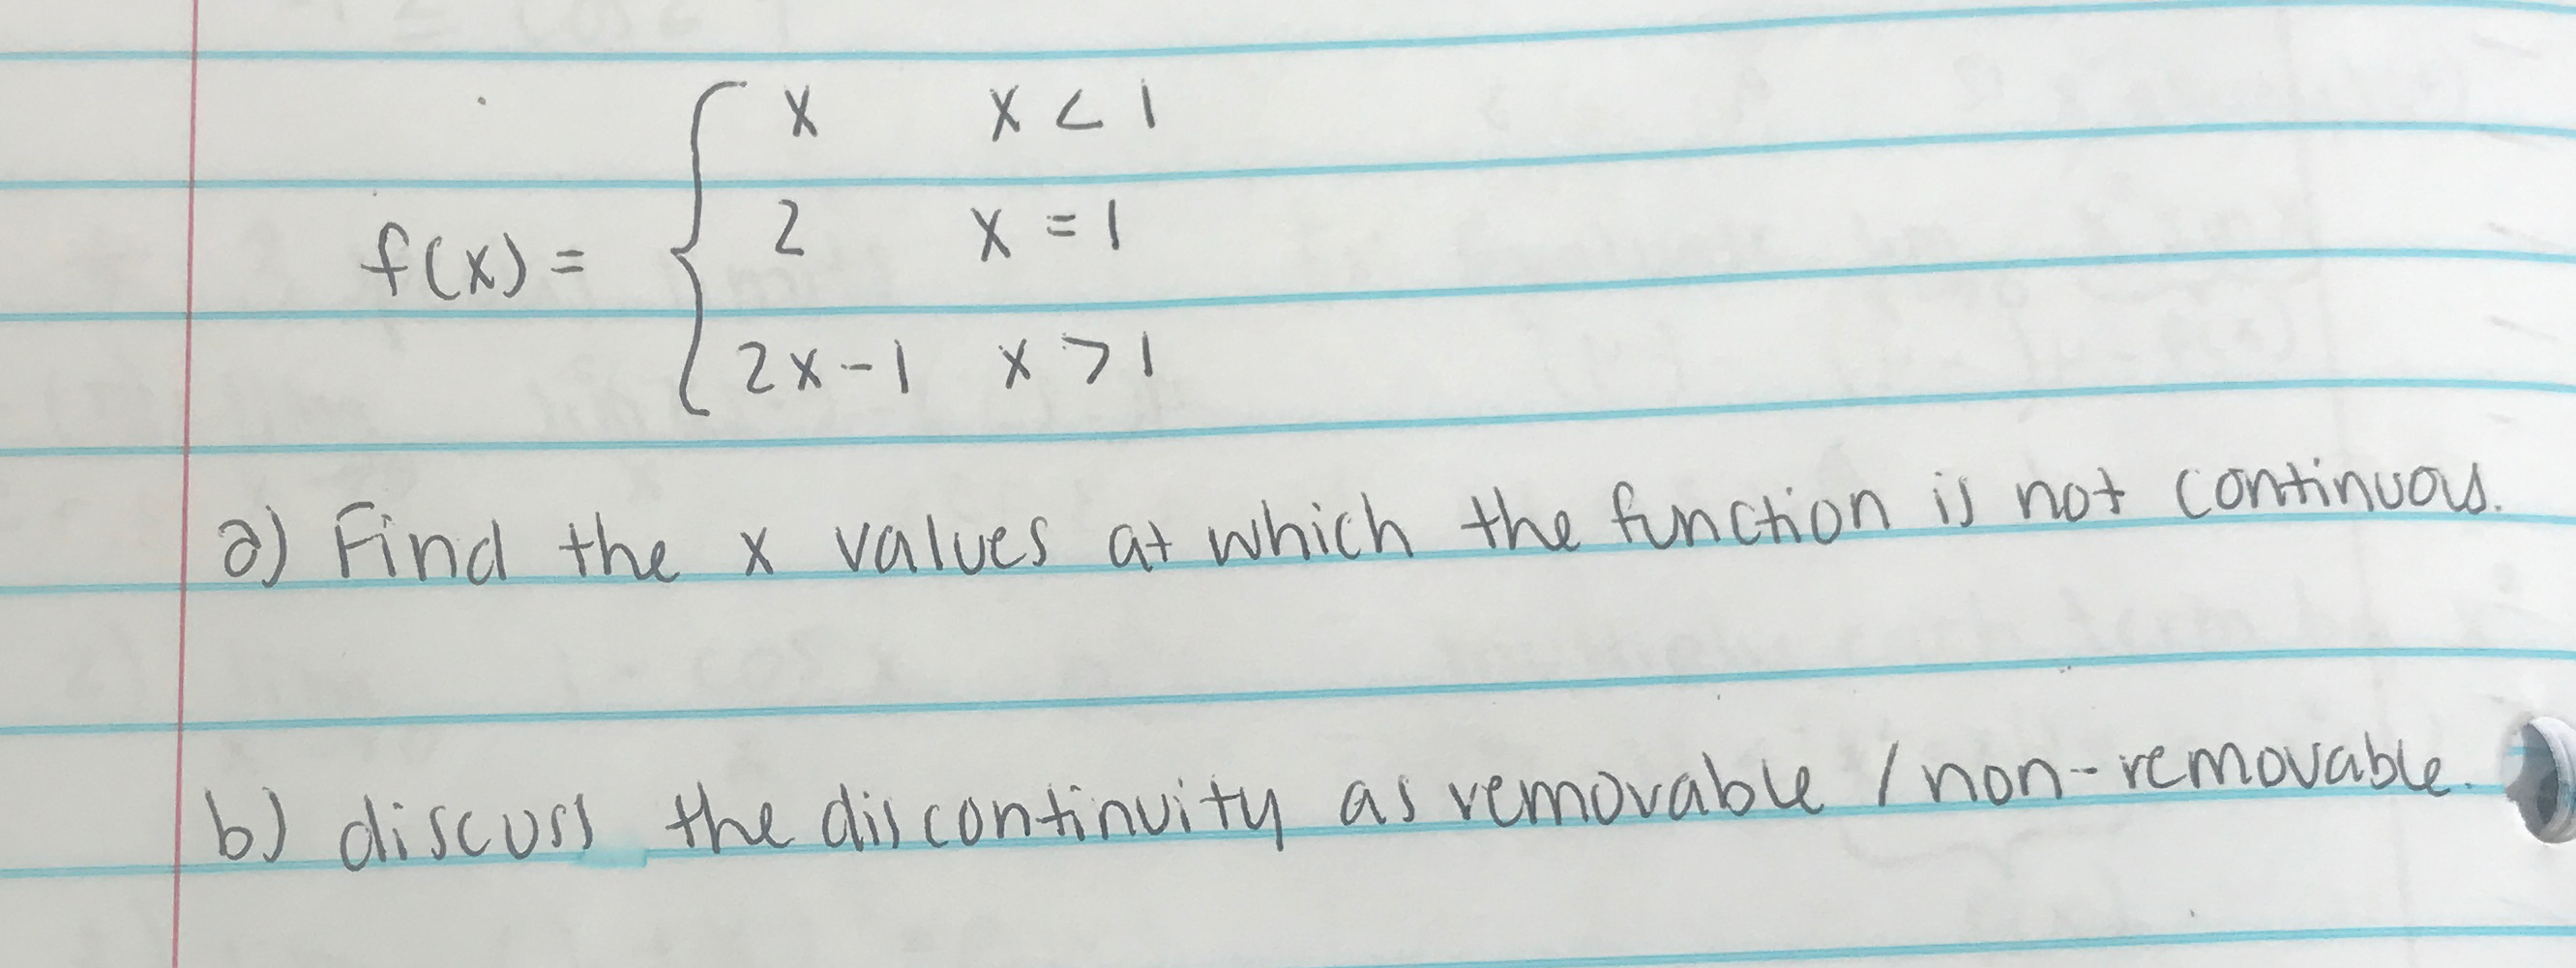 x x < 1
f(x) = { 2 x = 1
2x - 1 x > 1
a) Find the x values at which the function is not continuous.
b) discuss the discontinuity as removable / non-removable.